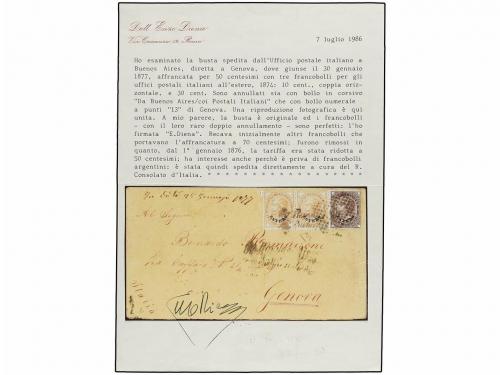 Dott. Enzo Diena
Via Crescenzio 19 Roma
7 luglio 1986
Ho esaminato la busta spedita dall'Ufficio postale italiano a
Buenos Aires, diretta a Genova, dove giunse il 30 gennaio
1877, affrancata per 50 centesimi con tre francobolli per gli
uffici postali italiani all'estero, 1874: 10 cent., coppia oriz-
zontale, e 30 cent. Sono annullati sia con bollo in corsivo
"Da Buenos Aires/coi Postali Italiani" che con bollo numerale
a punti "13" di Genova. Una riproduzione fotografica è qui
unita. A mio parere, la busta è originale ed i francobolli
- con il loro raro doppio annullamento - sono perfetti: l'ho
firmata "E.Diena". Recava inizialmente altri francobolli che
portavano l'affrancatura a 70 centesimi; furono rimossi in
quanto, dal 1° gennaio 1876, la tariffa era stata ridotta a
50 centesimi; ha interesse anche perchè è priva di francobolli
argentini: è stata quindi spedita direttamente a cura del R.
Consolato d'Italia. * * * * * * * * * * * * * * * * * * *
Genova